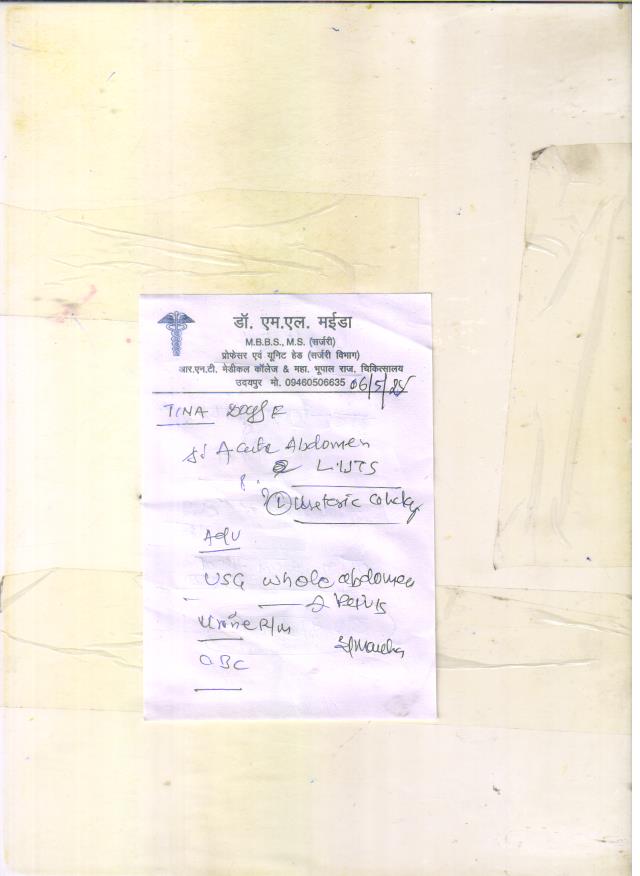 डॉ. एम.एल. मईडा
M.B.B.S., M.S. (सर्जरी)
प्रोफेसर एवं यूनिट हेड (सर्जरी विभाग)
आर.एन.टी. मेडीकल कॉलेज & महा. भूपाल राज. चिकित्सालय
उदयपुर मो. 09460506635 06/5/24
TINA
Acute Abdomen
? (L) Ureteric colicky
Adv
USG whole abdomen
Pelvis
Urine R/M
CBC